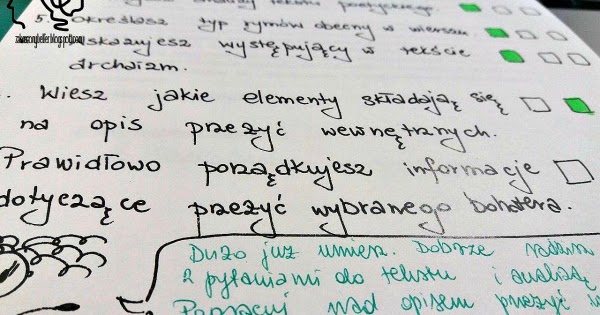 analizy tekstu poetyckiego
5. Określasz typ rymów obecny w wierszu.
wskazujesz występujący w tekście
archaizm.
Wiesz jakie elementy składają się
na opis przeżyć wewnętrznych.
Prawidłowo porządkujesz informacje
dotyczące przeżyć wybranego bohatera.
Dużo już umiesz. Dobrze radzisz
z pytaniami do tekstu i analizą
Popracuj nad opisem przeżyć